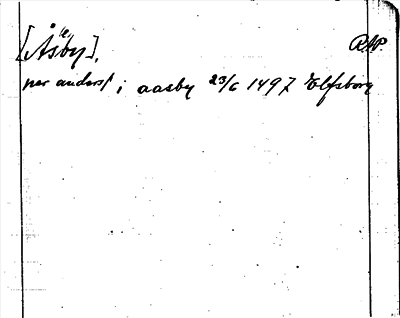 [Åsby], RAP.
per anderss i aasby 23/6 1497 Elfsborg